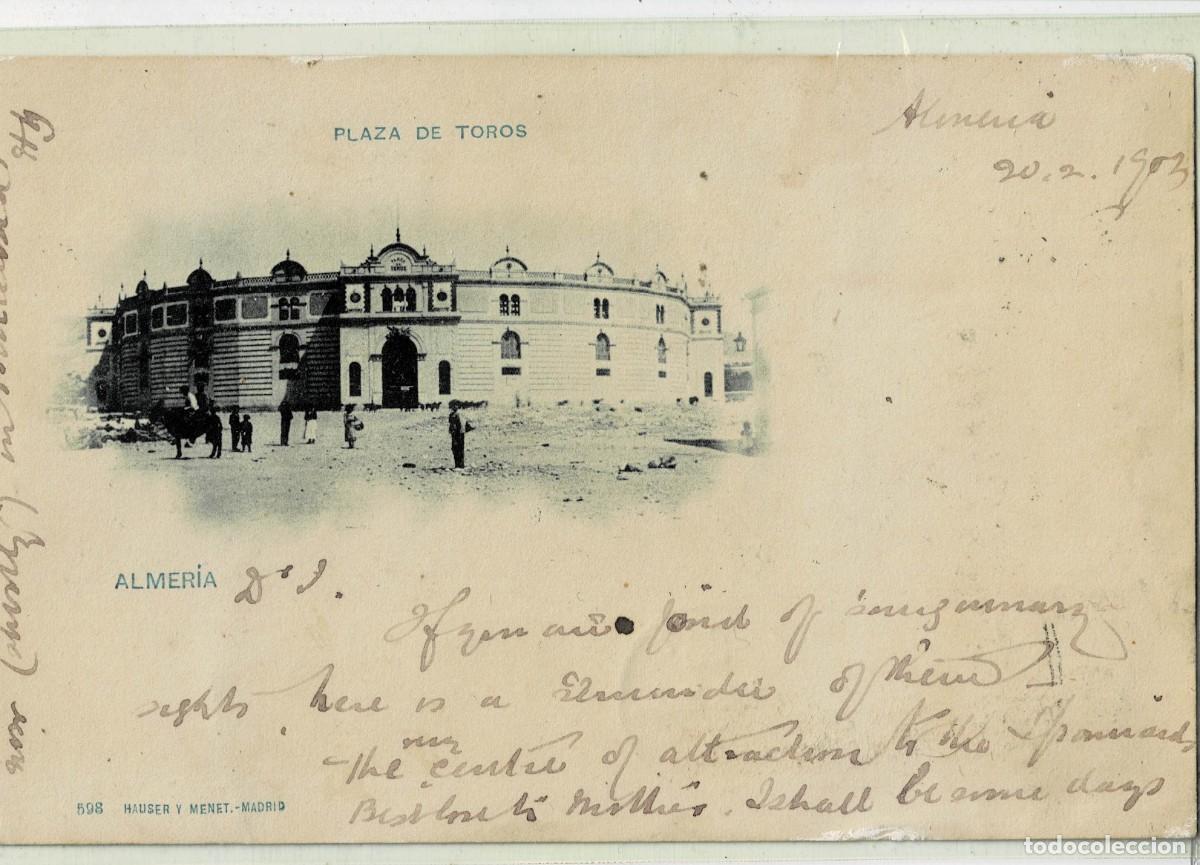 PLAZA DE TOROS
Almeria
20.2.1903
PLAZA DE TOROS
ALMERÍA
Dr J.
If you are fond of
sights here is a of them
The centre of attraction to the Spaniards
Best love to Mother. I shall be some days
now (mostly) in
598 HAUSER Y MENET.-MADRID
todocoleccion